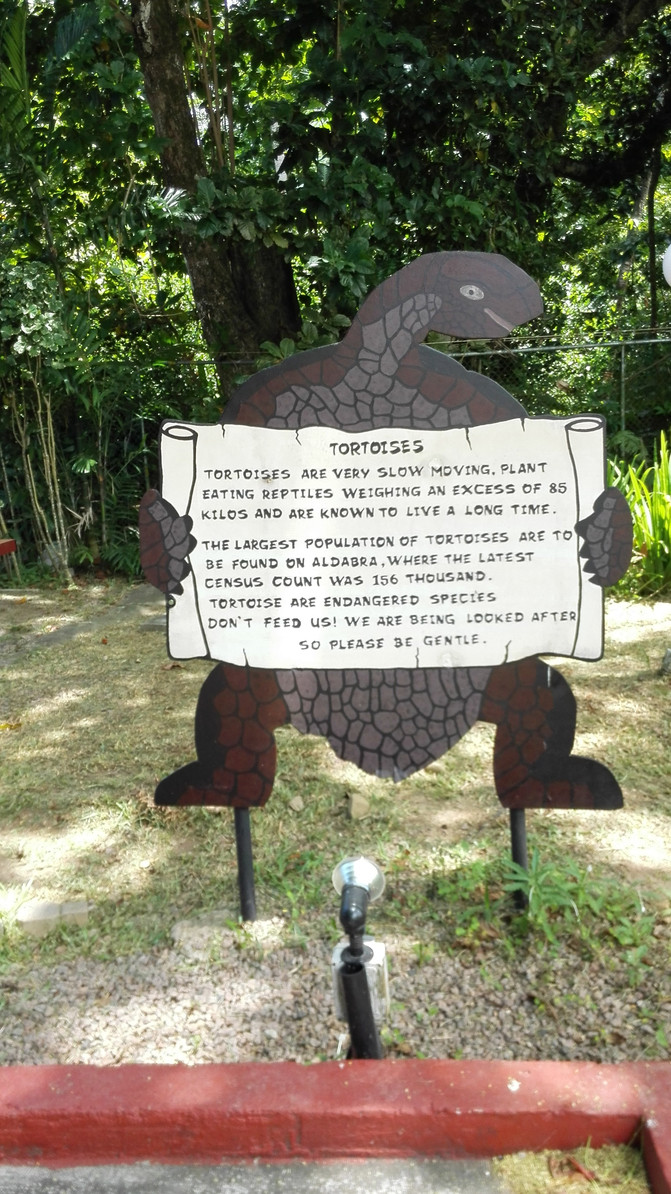 TORTOISES
TORTOISES ARE VERY SLOW MOVING, PLANT
EATING REPTILES WEIGHING AN EXCESS OF 85
KILOS AND ARE KNOWN TO LIVE A LONG TIME.
THE LARGEST POPULATION OF TORTOISES ARE TO
BE FOUND ON ALDABRA, WHERE THE LATEST
CENSUS COUNT WAS 156 THOUSAND.
TORTOISE ARE ENDANGERED SPECIES
DON'T FEED US! WE ARE BEING LOOKED AFTER
SO PLEASE BE GENTLE.